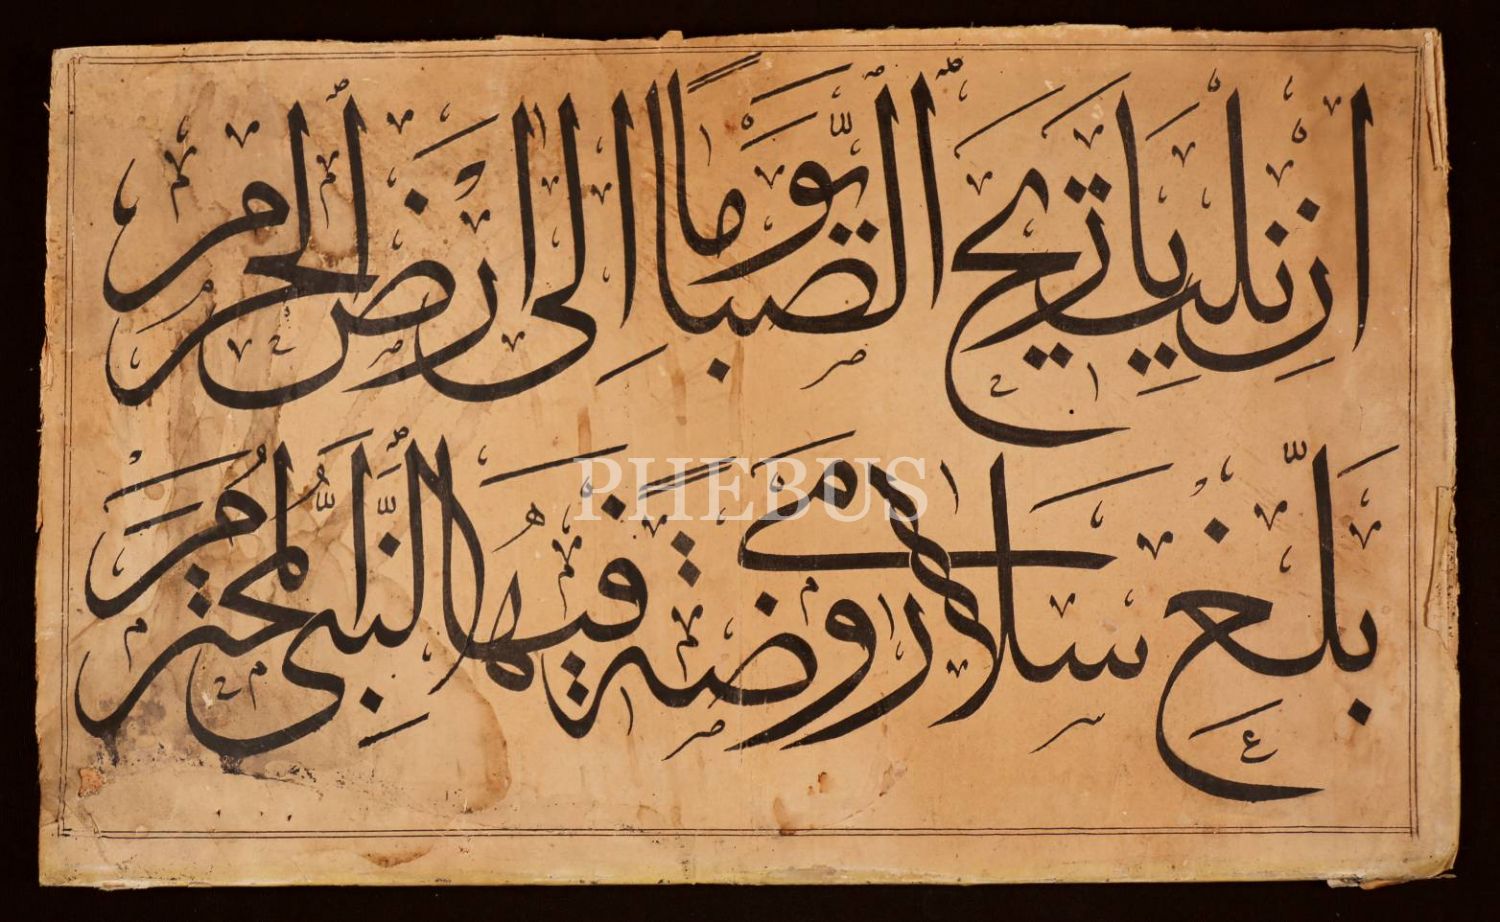 ان نلت يا ريح الصبا يومًا الى ارض الحرم
بلّغ سلامى روضةً فيها النّبى المحترم
PHEBUS